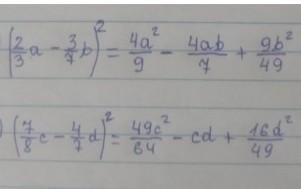 (2/3 a - 3/7 b)² = 4a²/9 - 4ab/7 + 9b²/49
) (7/8 c - 4/7 d)² = 49c²/64 - cd + 16d²/49